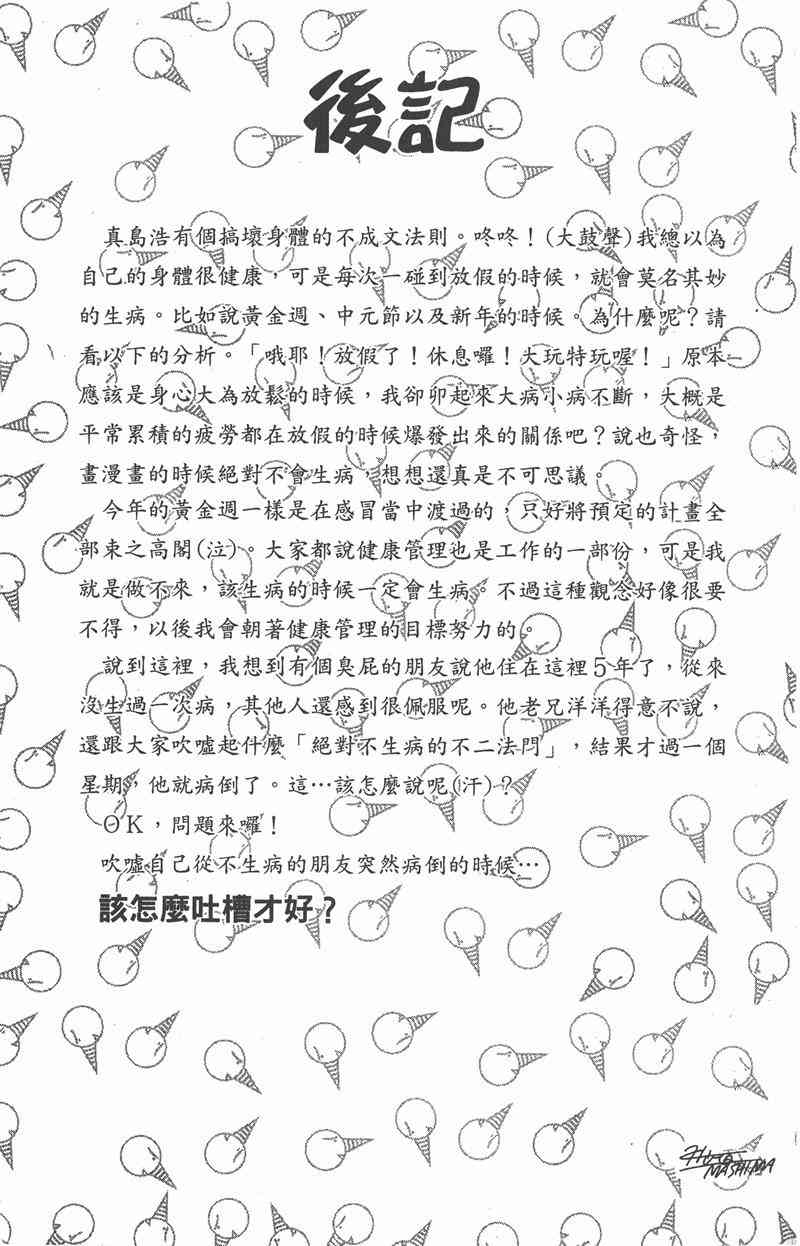 後記
真島浩有個搞壞身體的不成文法則。咚咚！(大鼓聲)我總以為
自己的身體很健康，可是每次一碰到放假的時候，就會莫名其妙
的生病。比如說黃金週、中元節以及新年的時候。為什麼呢？請
看以下的分析。「哦耶！放假了！休息囉！大玩特玩喔！」原本
應該是身心大為放鬆的時候，我卻卯起來大病小病不斷，大概是
平常累積的疲勞都在放假的時候爆發出來的關係吧？說也奇怪，
畫漫畫的時候絕對不會生病，想想還真是不可思議。
今年的黃金週一樣是在感冒當中渡過的，只好將預定的計畫全
部束之高閣(泣)。大家都說健康管理也是工作的一部份，可是我
就是做不來，該生病的時候一定會生病。不過這種觀念好像很要
不得，以後我會朝著健康管理的目標努力的。
說到這裡，我想到有個臭屁的朋友說他住在這裡5年了，從來
沒生過一次病，其他人還感到很佩服呢。他老兄洋洋得意不說，
還跟大家吹噓起什麼「絕對不生病的不二法門」，結果才過一個
星期，他就病倒了。這…該怎麼說呢(汗)？
OK，問題來囉！
吹噓自己從不生病的朋友突然病倒的時候…
該怎麼吐槽才好？
HIRO
MASHIMA